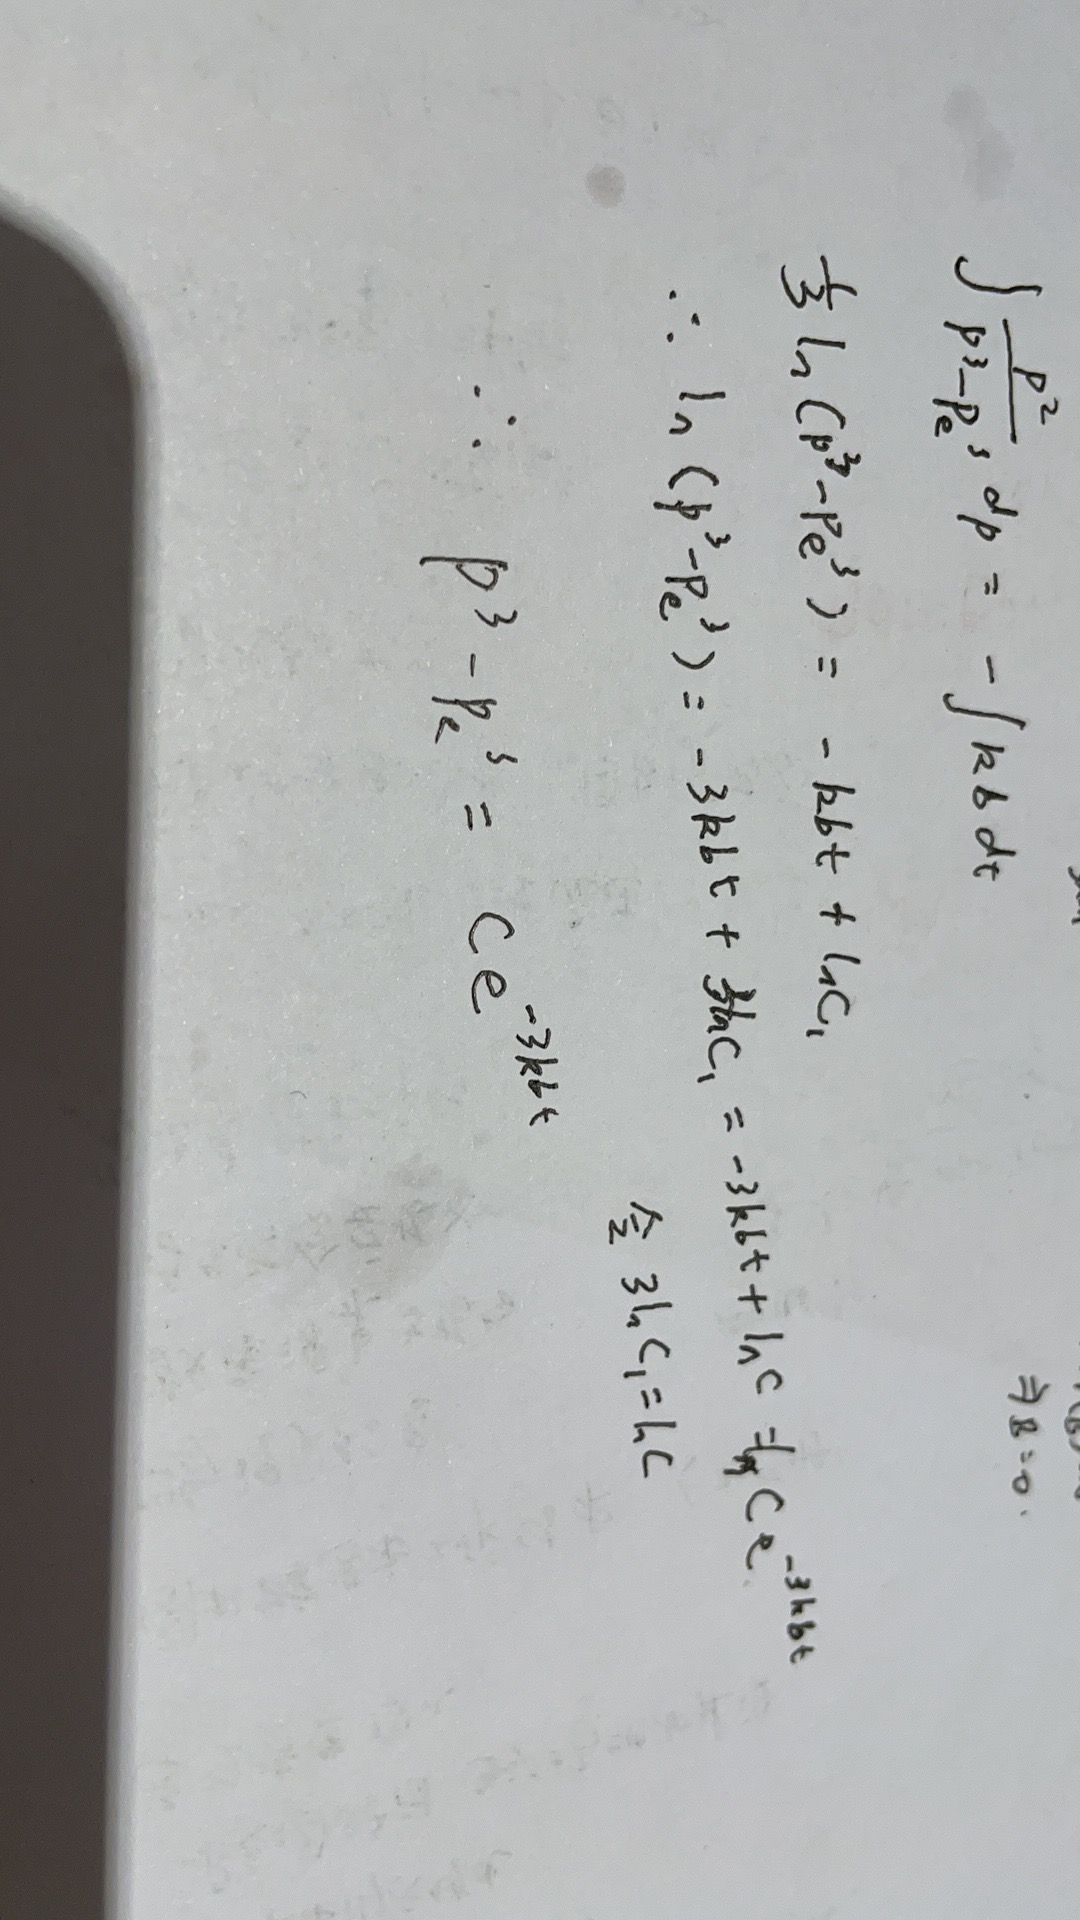 ⇒ R = 0.
∫ p²/(p³-Pe³) dp = - ∫ kb dt
1/3 ln (p³-Pe³) = - kbt + lnC₁
∴ ln (p³-Pe³) = -3kbt + 3lnC₁ = -3kbt + lnC = ln Ce^(-3kbt)
令 3lnC₁ = lnC
∴ p³ - Pe³ = Ce^(-3kbt)